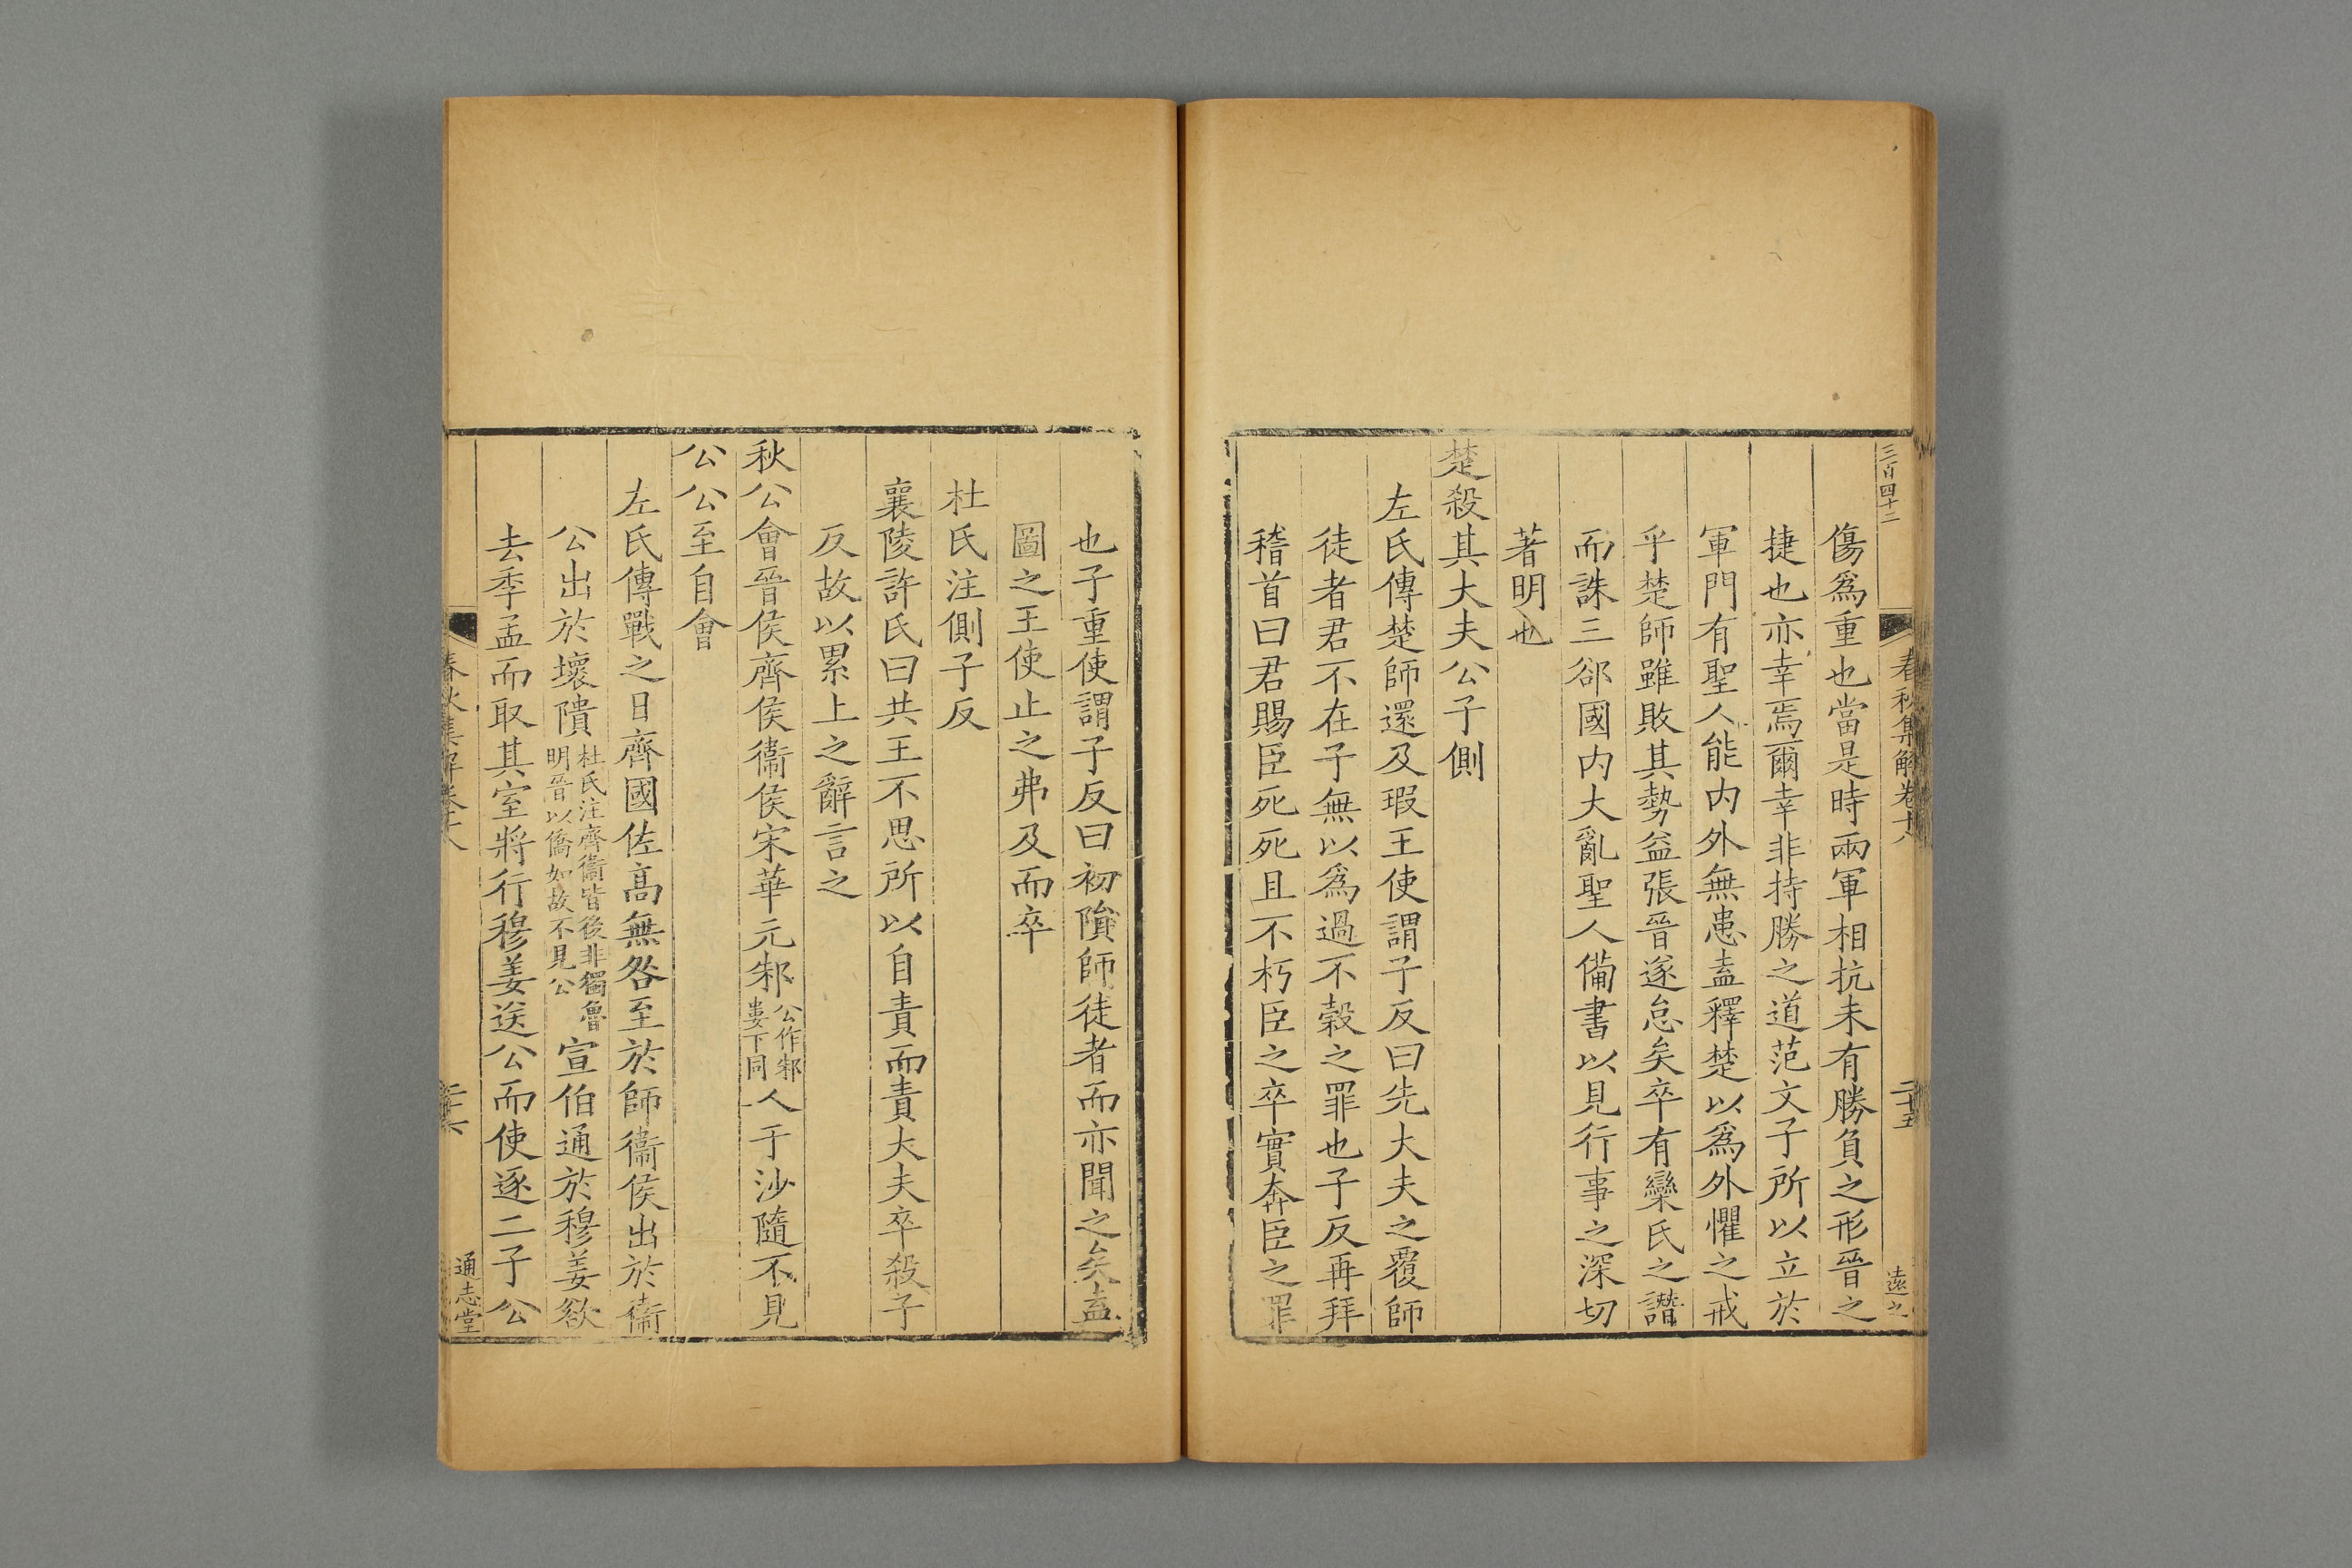 三百四十二
春秋集解卷十八
二十五
遠之
傷爲重也當是時兩軍相抗未有勝負之形晉之
捷也亦幸焉爾幸非持勝之道范文子所以立於
軍門有聖人能内外無患盍釋楚以爲外懼之戒
乎楚師雖敗其勢益張晉遂怠矣卒有欒氏之譖
而誅三郤國内大亂聖人備書以見行事之深切
著明也
楚殺其大夫公子側
左氏傳楚師還及瑕王使謂子反曰先大夫之覆師
徒者君不在子無以爲過不穀之罪也子反再拜
稽首曰君賜臣死死且不朽臣之卒實奔臣之罪
也子重使謂子反曰初隕師徒者而亦聞之矣盍
圖之王使止之弗及而卒
杜氏注側子反
襄陵許氏曰共王不思所以自責而責大夫卒殺子
反故以累上之辭言之
秋公會晉侯齊侯衞侯宋華元邾公作邾婁下同人于沙隨不見
公公至自會
左氏傳戰之日齊國佐高無咎至於師衞侯出於衞
公出於壞隤杜氏注齊衞皆後非獨魯明晉以僑如故不見公宣伯通於穆姜欲
去季孟而取其室將行穆姜送公而使逐二子公
春秋集解卷十八
二十六
通志堂